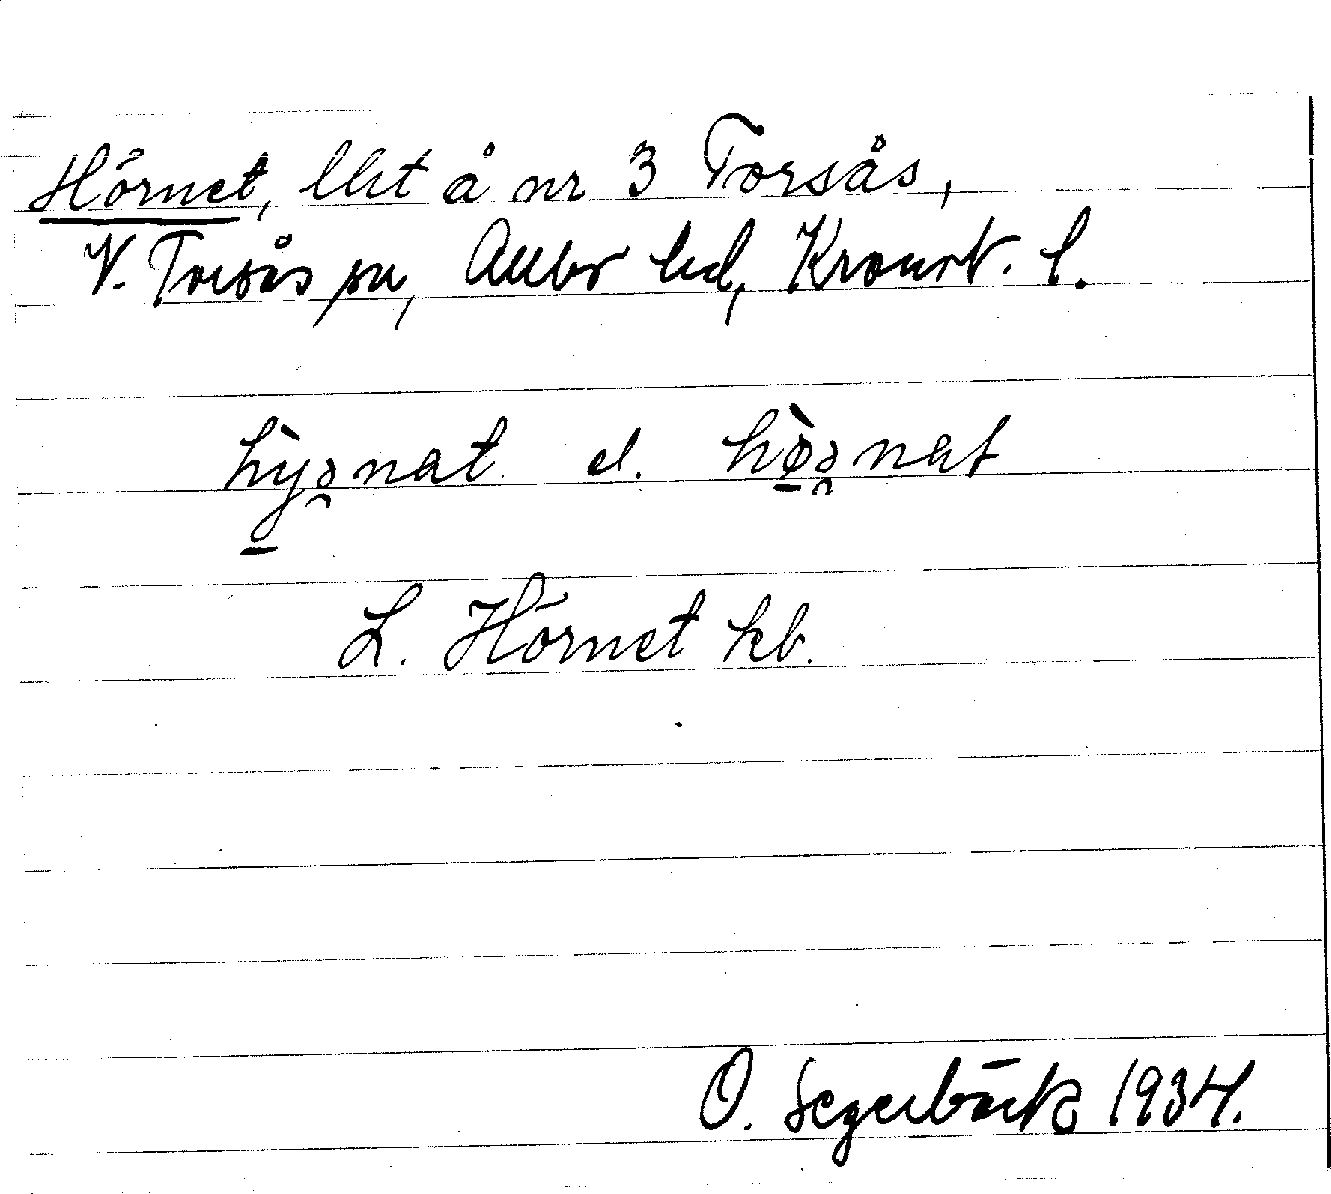 Hörnet, lht å nr 3 Torsås,
V. Torsås sn, Allbo hd, Kronob. l.
hỳənat el. hø̀ənat
L. Hörnet kb.
O. Segerbäck 1934.